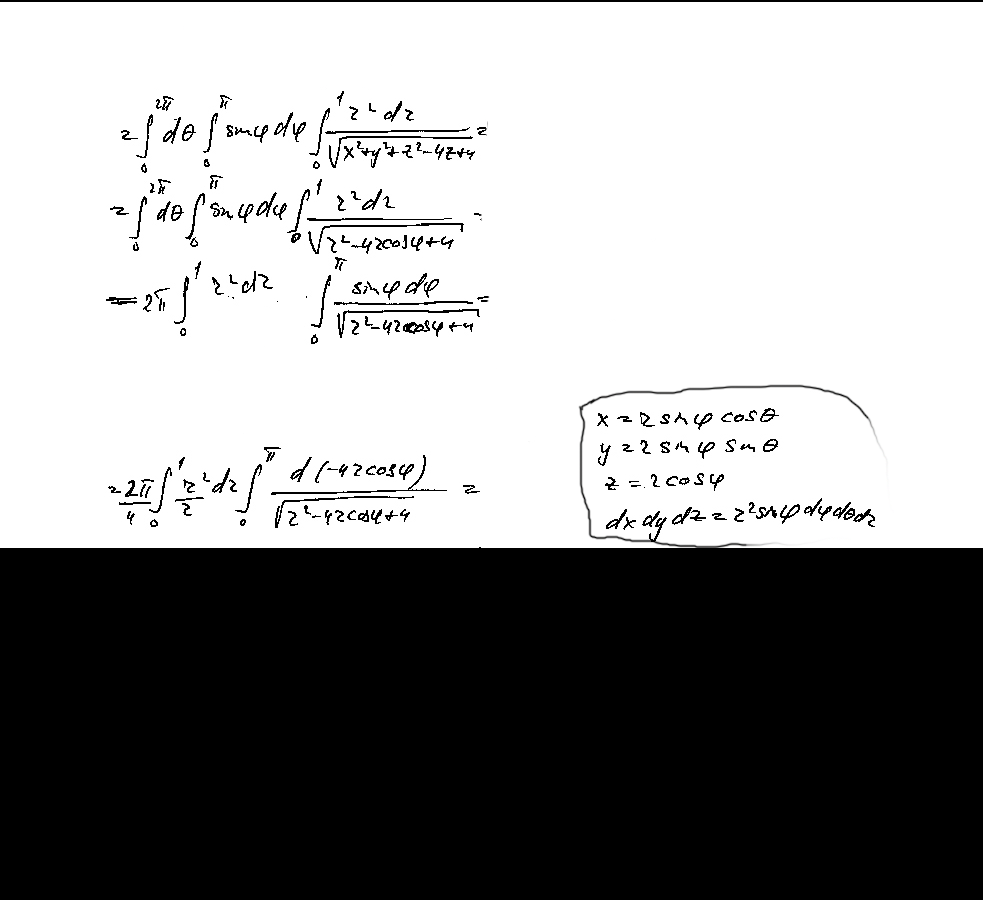 = ∫₀^{2π} dθ ∫₀^{π} sinφ dφ ∫₀^{1} r² dr / √(x²+y²+z²-4z+4) =
= ∫₀^{2π} dθ ∫₀^{π} sinφ dφ ∫₀^{1} r² dr / √(r²-4rcosφ+4) =
= 2π ∫₀^{1} r² dr ∫₀^{π} sinφ dφ / √(r²-4rcosφ+4) =
= 2π/4 ∫₀^{1} r²/r dr ∫₀^{π} d(-4rcosφ) / √(r²-4rcosφ+4) =
x = r sinφ cosθ
y = r sinφ sinθ
z = r cosφ
dx dy dz = r² sinφ dφ dθ dr